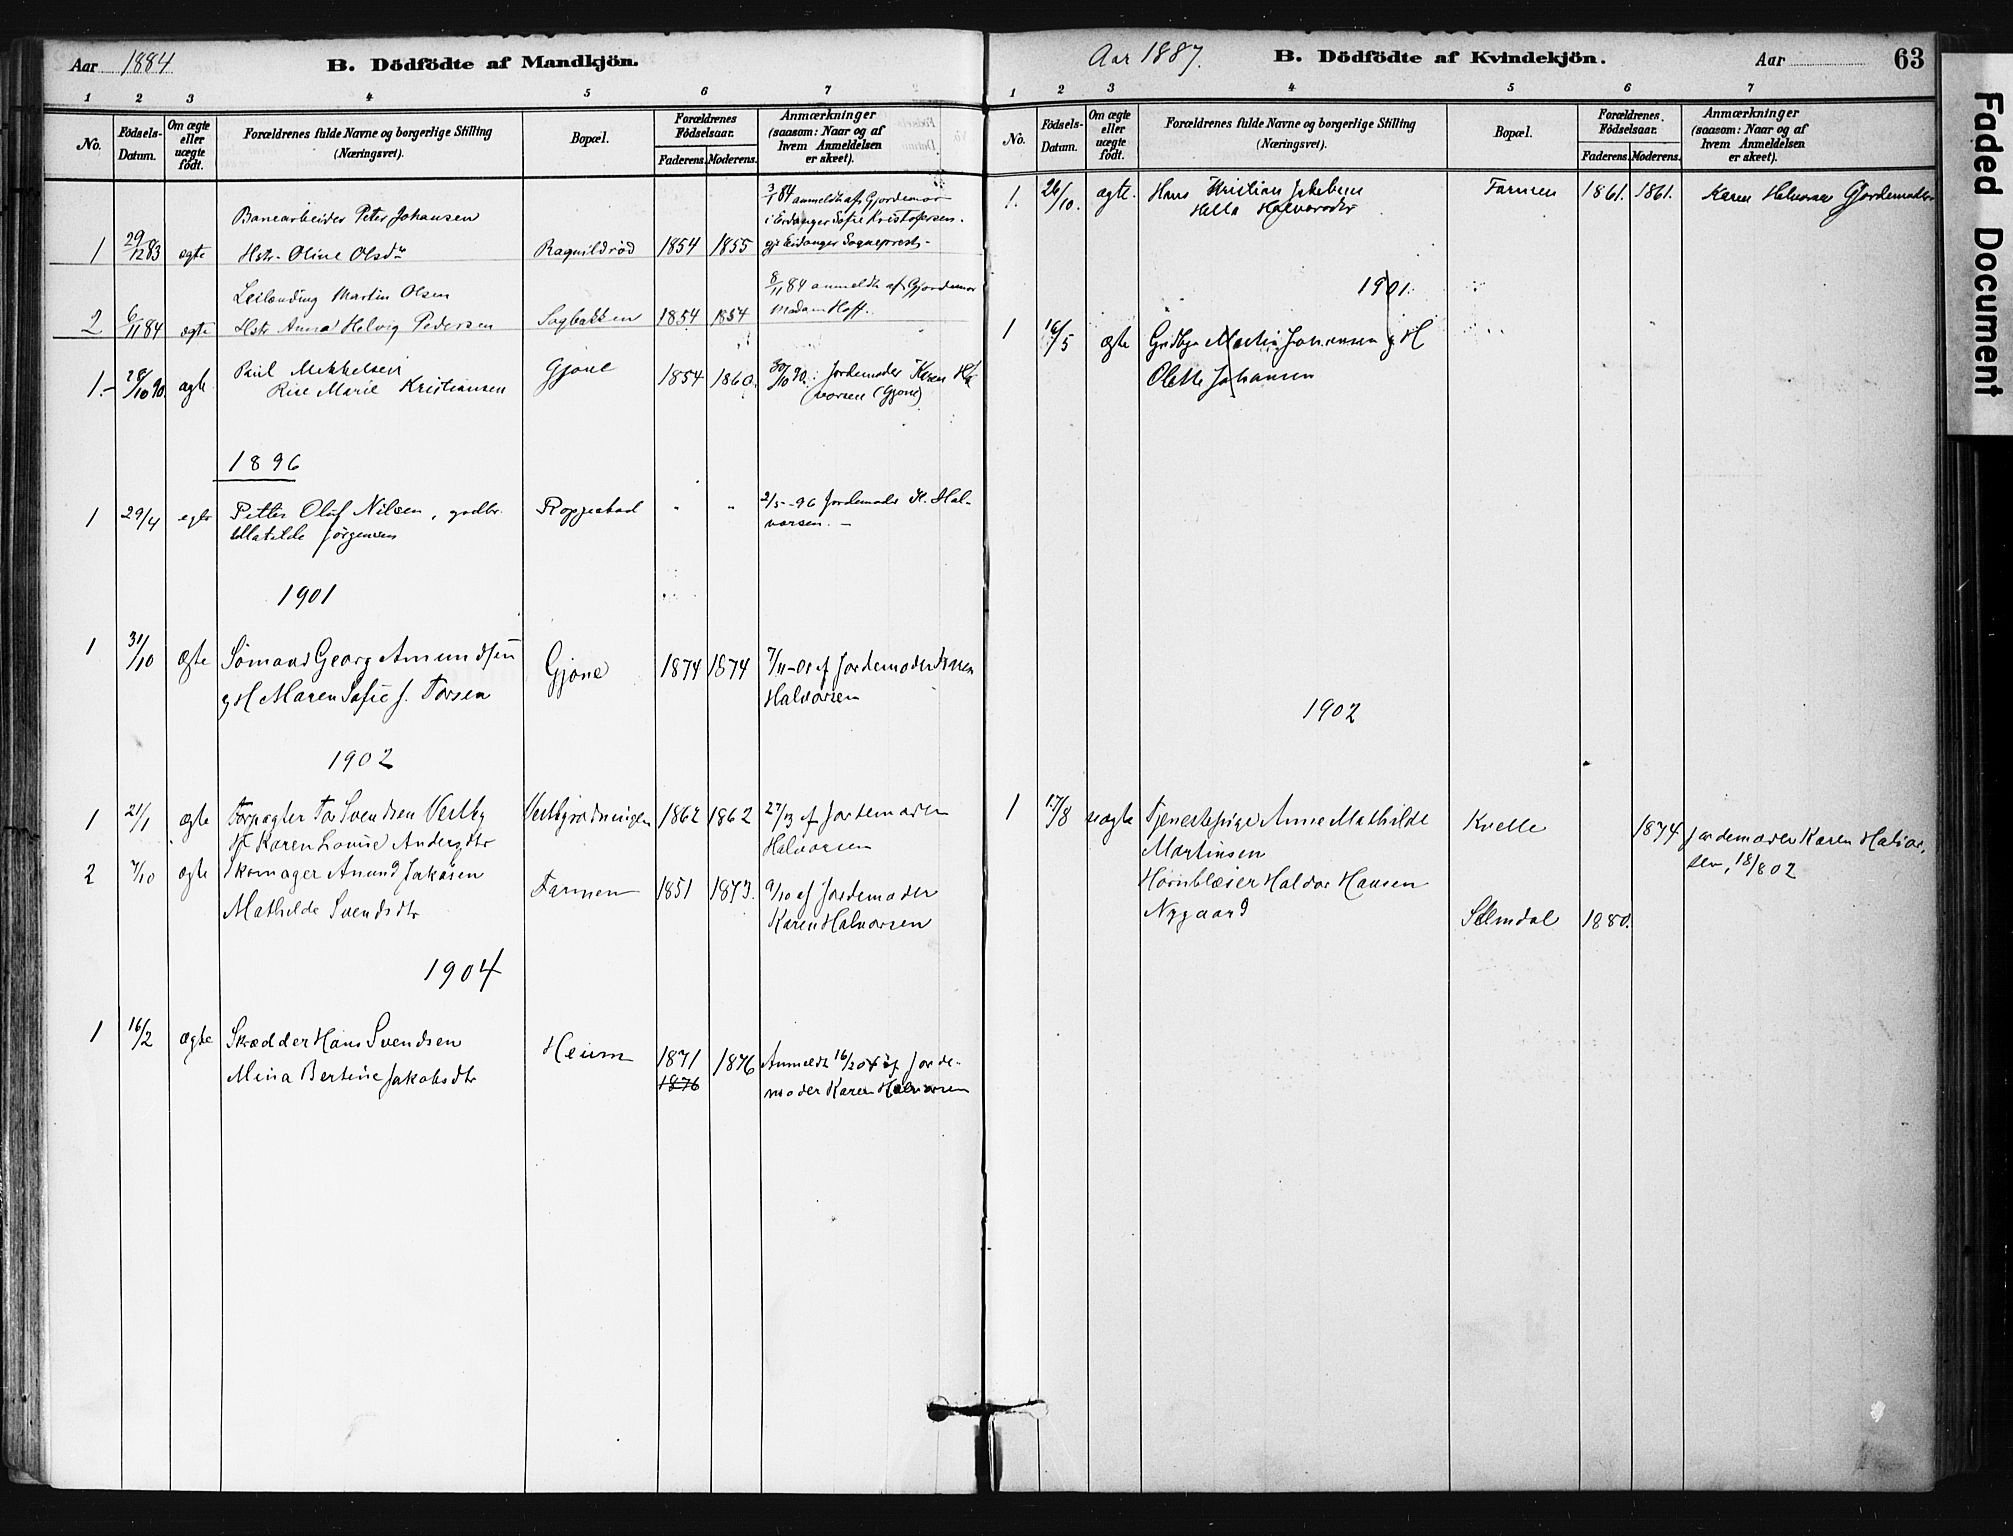 Aar 1884
B. Dödfödte af Mandkjön.
1 2 3 4 5 6 7
No.
Födsels-Datum.
Om ægte eller uægte födt.
Forældrenes fulde Navne og borgerlige Stilling (Næringsvei).
Bopæl.
Forældrenes Födselsaar.
Faderens. Moderens.
Anmærkninger (saasom: Naar og af hvem Anmeldelsen er skeet).
3/1 84 anmeldt af Gjordemor
Banearbeider Peter Johansen
i Eidanger Sofie Kristofersen.
1 29/12 83 ægte Hstr. Oline Olsdtr Ragnildrød 1854 1855 Eidanger Sogneprest.
Leilending Martin Olsen
8/11 84 anmeldt af Gjordemor
2 6/11 84 ægte Hstr Anna Helvig Pedersen Sagbakken 1854 1854 Madam Hoff.
1. 28/10 90. ægte Paul Mikkelsen Gjone 1854 1860. 30/10 90. Jordemoder Karen Hal
Marie Kristiansen
vorsen (Gjone)
1896
1 29/4 egte Petter Oluf Nilsen, gadbr. Roppestad " " 2/5 - 96 Jordemoder K. Hal-
Matilde Jørgensen
vorsen. –
1901
1 31/10 Ægte Sömand Georg Amundsen Gjone 1874 1874 7/11-01 af Jordemoder Karen
g H Maren Sofie J. Torsen
Halvorsen
1902
1 21/1 ægte Forpagter Tor Svendsen Vestby 1862 1862 af Jordemoder
H Karen Louise Andersdtr
Halvorsen
2 7/10 ægte Skomager Amund Jakosen Farmen 1851 1873. 9/10 af Jordemoder
Mathilde Svendsdtr
Karen Halvorsen
1904
1 16/2 ægte Skrædder Hans Svendsen Heium 1871 1876 Anmeldt 16/2 04 af Jorde-
Mina Bertine Jakobsdtr 1876 moder Karen Halvorsen
Aar 1887.
B. Dödfödte af Kvindekjön.
Aar
63
1 2 3 4 5 6 7
No.
Födsels-Datum.
Om ægte eller uægte födt.
Forældrenes fulde Navne og borgerlige Stilling (Næringsvei).
Bopæl.
Forældrenes Födselsaar.
Faderens. Moderens.
Anmærkninger (saasom: Naar og af hvem Anmeldelsen er skeet).
1. 26/10. ægte. Hans Kristian Jakobsen Farmen 1861. 1861. Karen Halvorsen Gjordemoder
Hella Halvorsdtr
1901.
1 16/5 Ægte Martin Johansen g H
Olette Johansen
1902
1 17/8 uægte Tjenestepige Anne Mathilde Kvelle 1874 Jordemoder Karen Halvor-
Martinsen
sen, 18/8 02
Hornblæser Haldor Hansen
Nygaard Slemdal 1880.
Faded Document